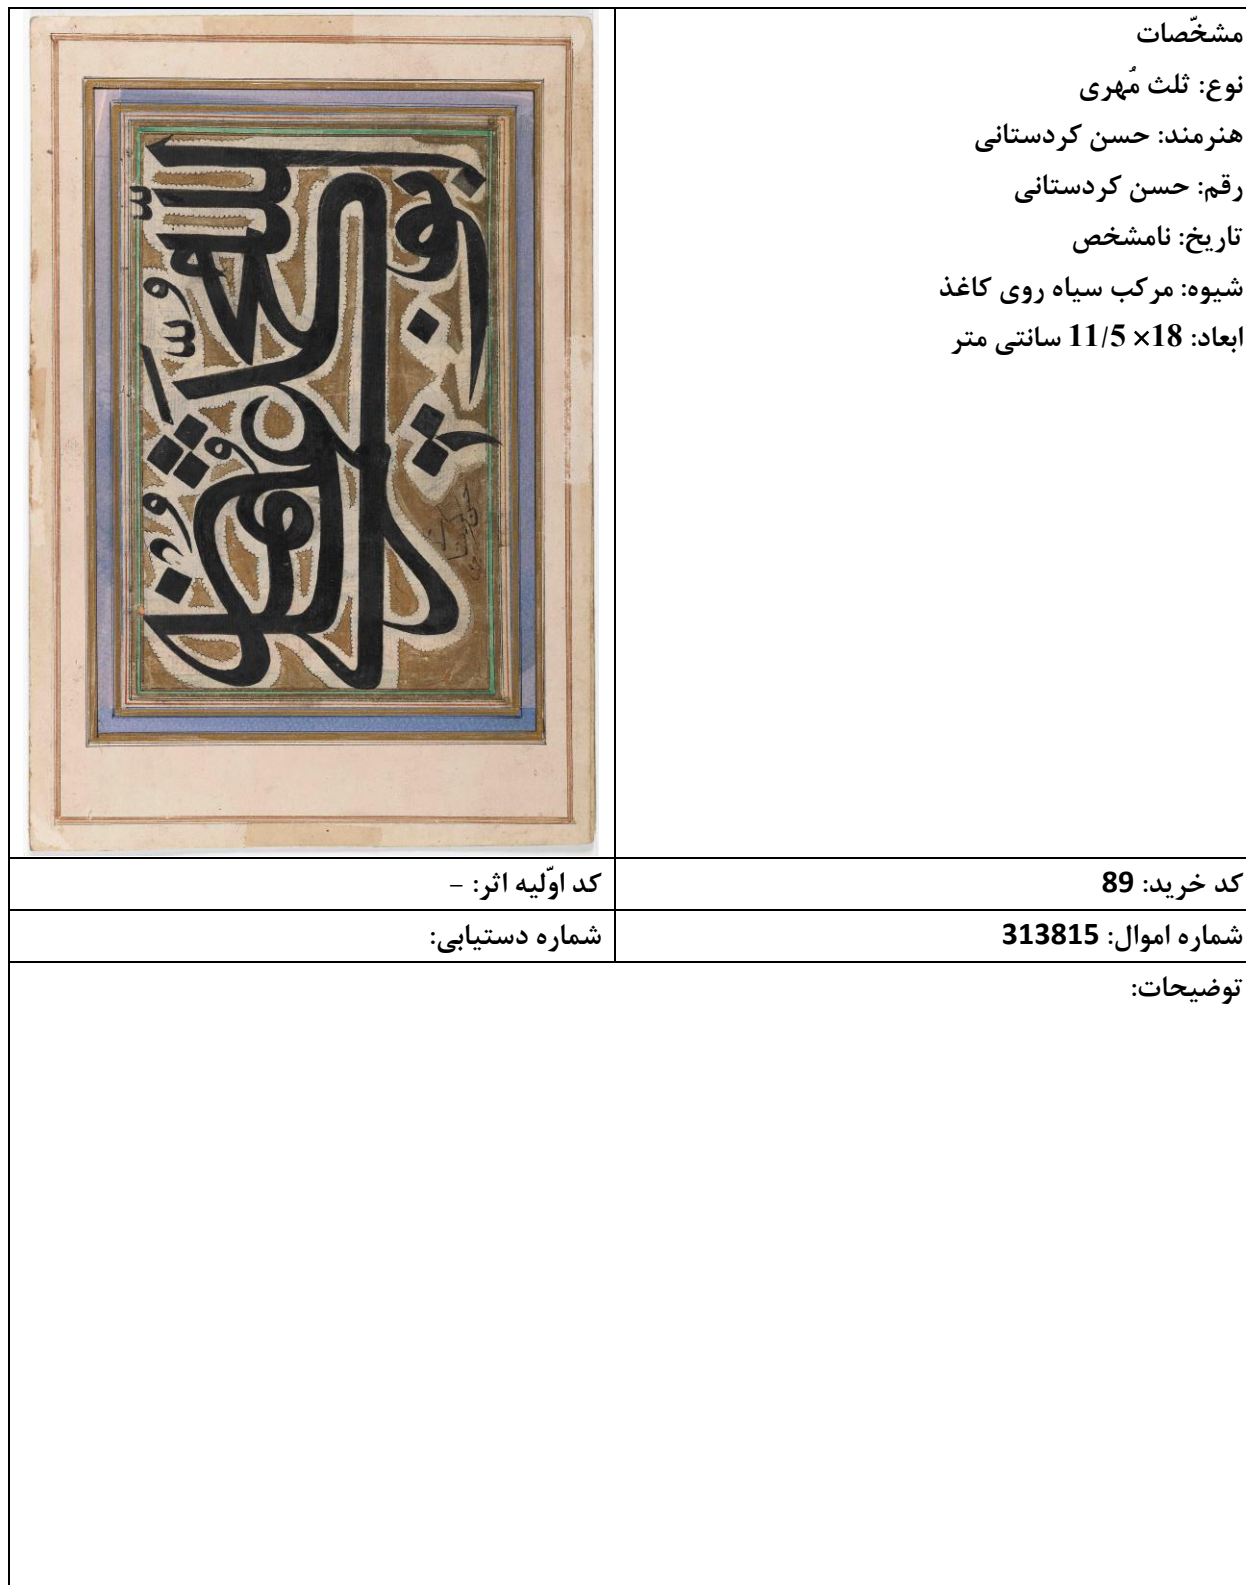 مشخّصات
نوع: ثلث مُهری
هنرمند: حسن کردستانی
رقم: حسن کردستانی
تاریخ: نامشخص
شیوه: مرکب سیاه روی کاغذ
ابعاد: 18× 11/5 سانتی متر
کد خرید: 89
کد اوّلیه اثر: –
شماره اموال: 313815
شماره دستیابی:
توضیحات: